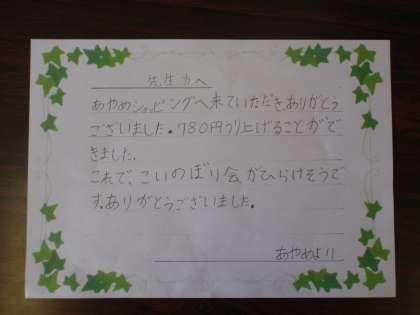 先生方へ
あやめショッピングへ来ていただき、ありがとう
ございました。780円うり上げることがで
きました。
これで、こいのぼり会がひらけそうで
す。ありがとうございました。
あやめより